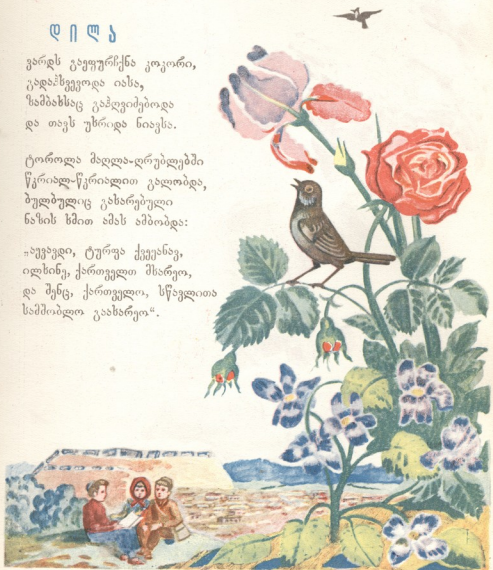 დილა
ვარდს გაეფურჩქნა კოკორი,
გადაჰხვეოდა იასა,
ზამბახსაც გაჰღვიძებოდა
და თავს უხრიდა ნიავსა.
ტოროლა მაღლა-ღრუბლებში
წკრიალ-წკრიალით გალობდა,
ბულბულიც გახარებული
ნაზის ხმით ამას ამბობდა:
„აყვავდი, ტურფა ქვეყანავ,
ილხინე, ქართველთ მხარეო,
და შენც, ქართველო, სწავლითა
სამშობლო გაახარეო“.